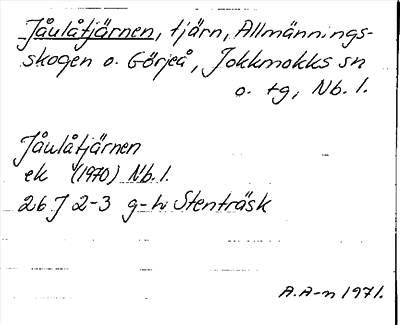 Jåulåtjärnen, tjärn, Allmännings-
skogen o. Görjeå, Jokkmokks sn
o. tg, Nb. l.
Jåulåtjärnen
ek (1970) Nb. l.
26 J 2-3 g-h Stenträsk
A. A-n 1971.